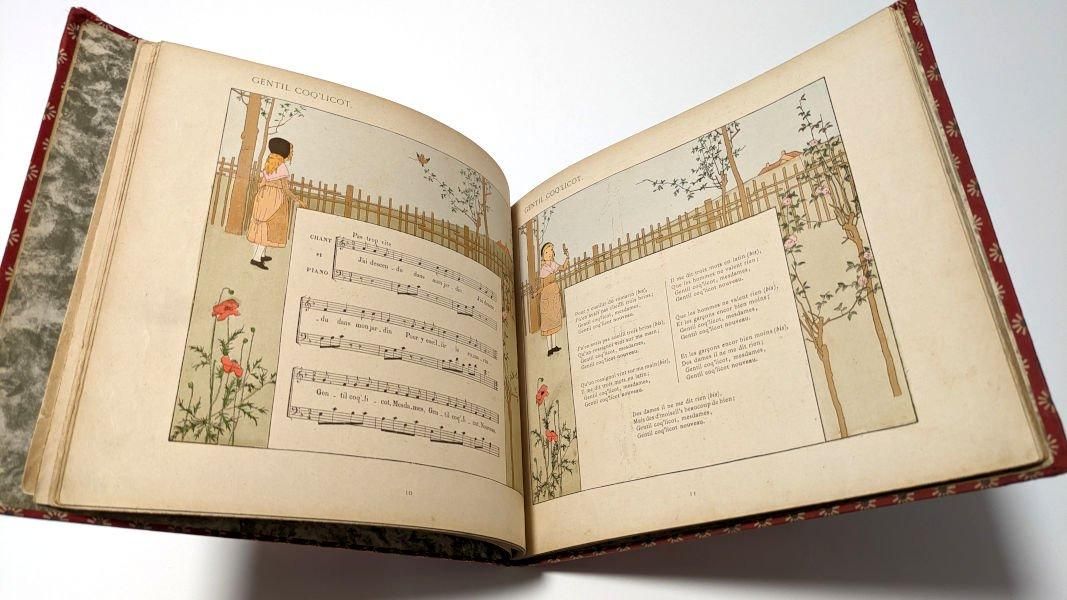 GENTIL COQ'LICOT.
Pas trop vite
CHANT
ET
PIANO
J'ai descen - du dans mon jar - din J'ai descen -
- du dans mon jar - din Pour y cueil - lir le roma - rin
Gen - til coq' - li - cot, Mesda - mes, Gen - til coq' - li - cot, Nouveau.
10
GENTIL COQ'LICOT.
Pour y cueillir du romarin (bis),
J'n'en avais pas cueilli trois brins;
Gentil coq'licot, mesdames,
Gentil coq'licot nouveau.
J'n'en avais pas cueilli trois brins (bis),
Qu'un rossignol vint sur ma main;
Gentil coq'licot, mesdames,
Gentil coq'licot nouveau.
Qu'un rossignol vint sur ma main (bis),
Il me dit trois mots en latin;
Gentil coq'licot, mesdames,
Gentil coq'licot nouveau.
Il me dit trois mots en latin (bis),
Que les hommes ne valent rien;
Gentil coq'licot, mesdames,
Gentil coq'licot nouveau.
Que les hommes ne valent rien (bis),
Et les garçons encor bien moins;
Gentil coq'licot, mesdames,
Gentil coq'licot nouveau.
Et les garçons encor bien moins (bis),
Des dames il ne me dit rien;
Gentil coq'licot, mesdames,
Gentil coq'licot nouveau.
Des dames il ne me dit rien (bis),
Mais des d'moisell's beaucoup de bien;
Gentil coq'licot, mesdames,
Gentil coq'licot nouveau.
11